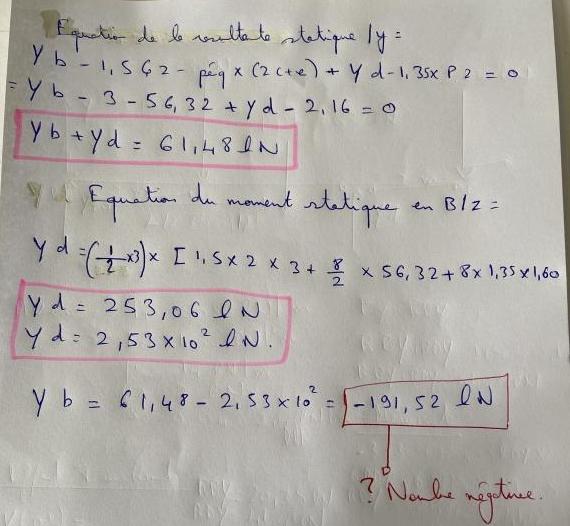 Equation de la resultate statique /y =
Yb - 1,5G2 - péq x (2c+e) + Yd - 1,35x P2 = 0
= Yb - 3 - 56,32 + Yd - 2,16 = 0
Yb + Yd = 61,48 lN
Equation du moment statique en B/z =
Yd = (1/2 x3) x [ 1,5 x 2 x 3 + 8/2 x 56,32 + 8 x 1,35 x 1,60
Yd = 253,06 lN
Yd = 2,53 x 10² lN.
Yb = 61,48 - 2,53 x 10² = -191,52 lN
? Nombre négative.